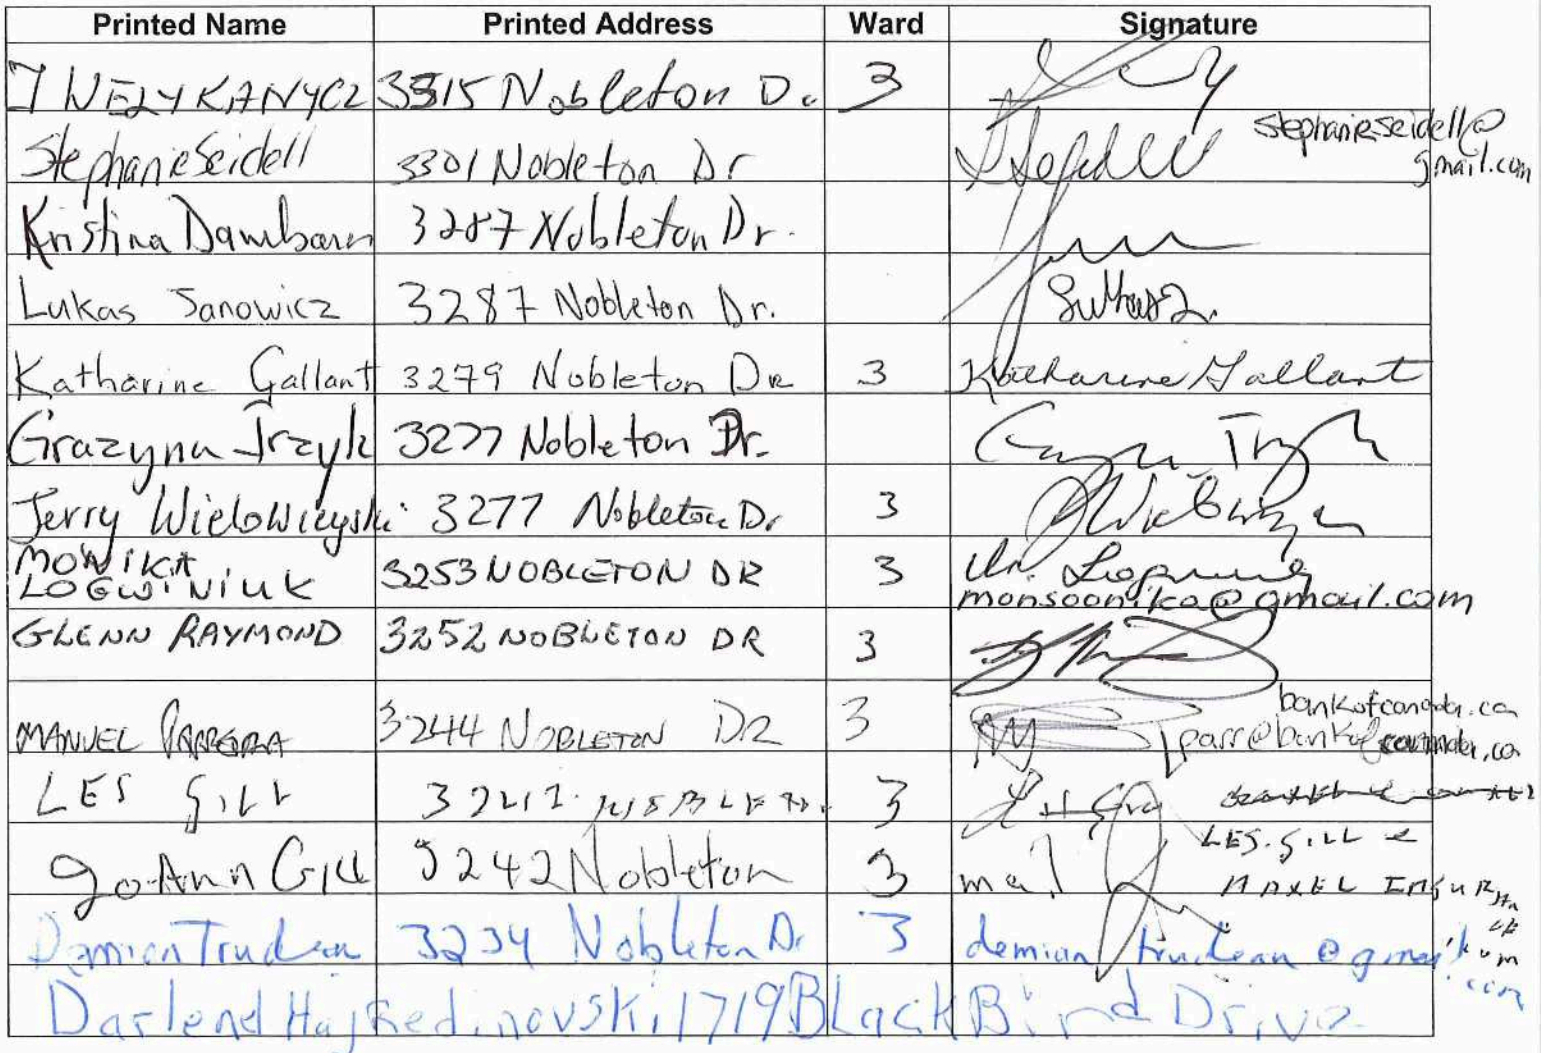 Printed Name Printed Address Ward Signature
J WELYKANYCZ 3315 Nobleton Dr 3
Stephanie Seidell 3301 Nobleton Dr stephanieseidell@
gmail.com
Kristina 3287 Nobleton Dr.
Lukas Janowicz 3287 Nobleton Dr.
Katharine Gallant 3279 Nobleton DR 3 Katharine Gallant
Grazyna 3277 Nobleton Dr.
Jerry Wielowieyski 3277 Nobleton Dr. 3
MONIKA
LOGWINIUK 3253 NOBLETON DR 3
monsoonika@gmail.com
GLENN RAYMOND 3252 NOBLETON DR 3
MANUEL PARREIRA 3244 NOBLETON DR 3 bankofcanada.ca
parr@bankofcanada.ca
LES GILL 3242 NOBLETON 3
LES.GILL @
JoAnn Gill 3242 Nobleton 3
Demian Trudeau 3234 Nobleton Dr 3 demian trudeau@gmail
.com
1719 Black Bird Drive